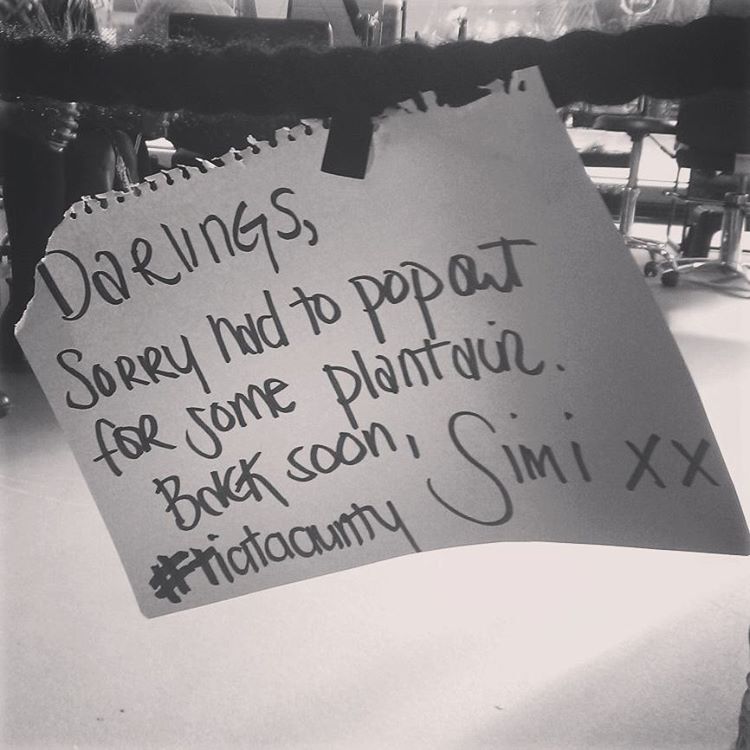 DaRlINGS,
SORRY had to pop out
foR some plantain.
Back soon, Simi xx
#tiataaunty